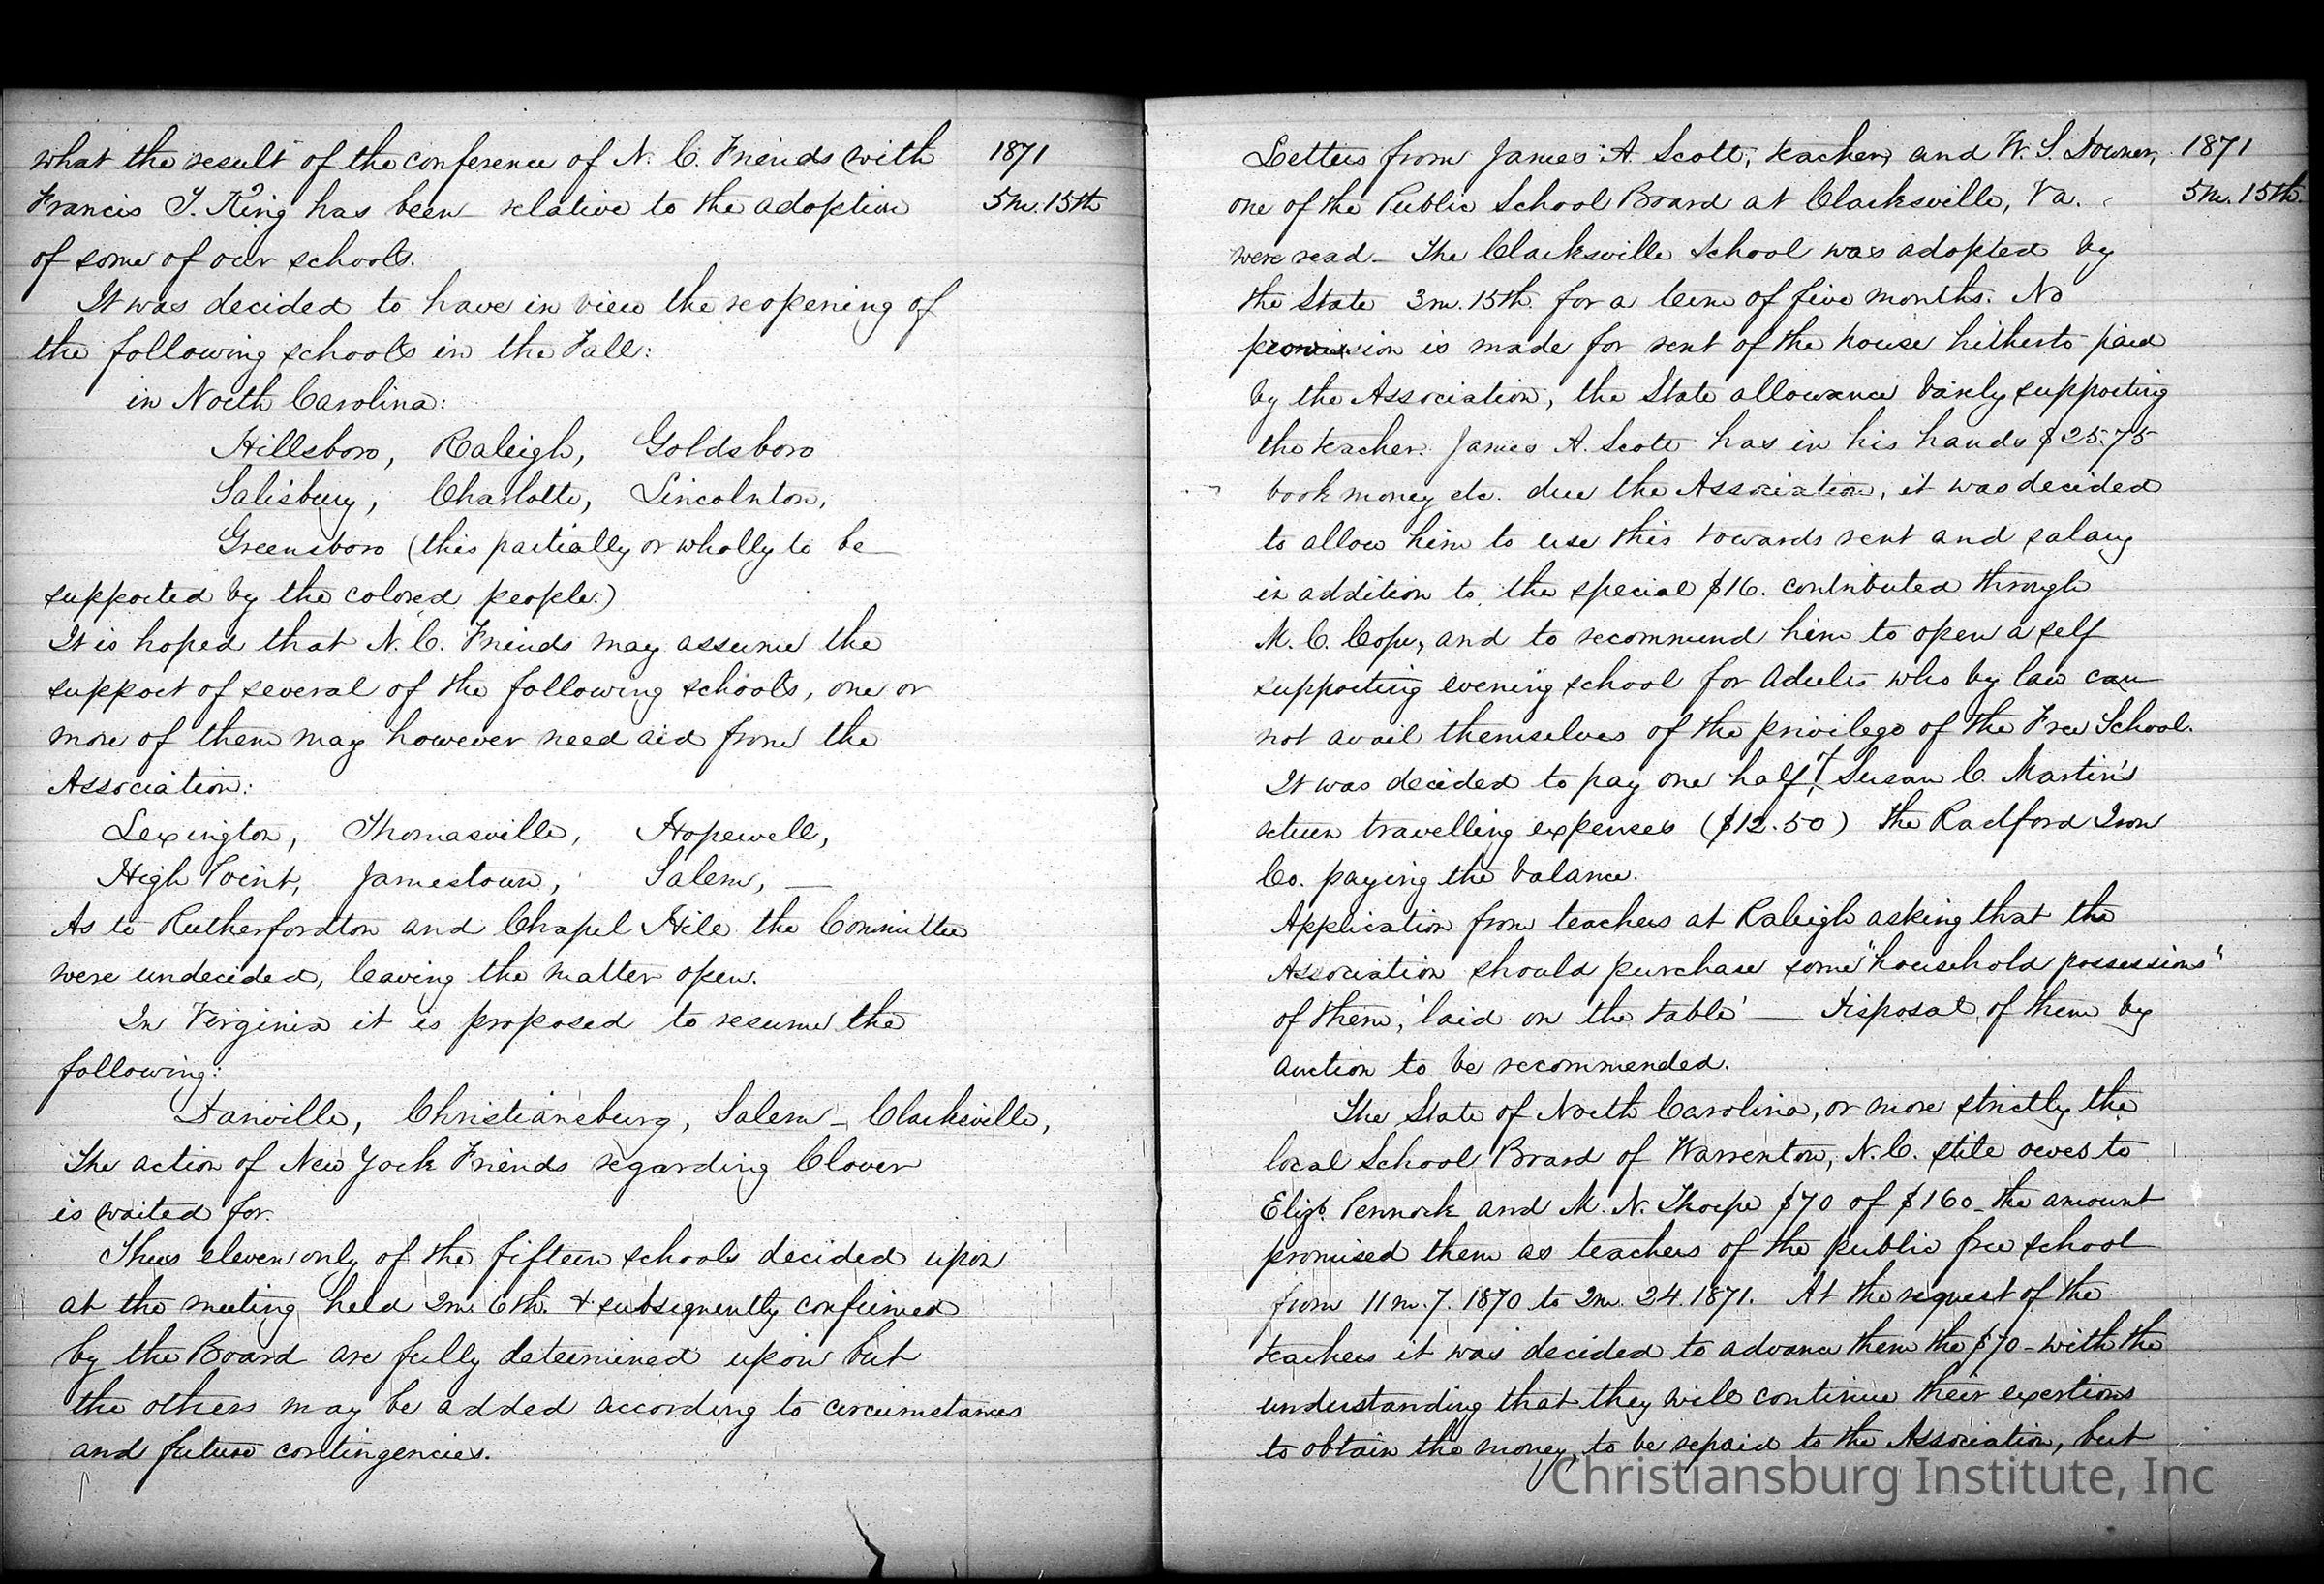 what the result of the conference of N. C. Friends with
Francis T. King has been relative to the adoption
of some of our schools.
It was decided to have in view the reopening of
the following schools in the Fall:
in North Carolina:
Hillsboro, Raleigh, Goldsboro
Salisbury, Charlotte, Lincolnton,
Greensboro (this partially or wholly to be
supported by the colored people.)
It is hoped that N. C. Friends may assume the
support of several of the following schools, one or
more of them may however need aid from the
Association:
Lexington, Thomasville, Hopewell,
High Point, Jamestown, Salem, —
As to Rutherfordton and Chapel Hill the Committee
were undecided, leaving the matter open.
In Virginia it is proposed to resume the
following:
Danville, Christiansburg, Salem - Clarksville,
The action of New York Friends regarding Clover
is waited for.
Thus eleven only of the fifteen schools decided upon
at the meeting held 2m. 6th. & subsequently confirmed
by the Board are fully determined upon but
the others may be added according to circumstances
and future contingencies.
1871
5m. 15th
Letters from James A. Scott, teacher, and W. S. Downer,
one of the Public School Board at Clarksville, Va.
were read - The Clarksville School was adopted by
the State 3m. 15th. for a term of five months. No
provision is made for rent of the house hitherto paid
by the Association, the State allowance barely supporting
the teacher. James A. Scott has in his hands $25.75
book money etc. due the Association, it was decided
to allow him to use this towards rent and salary
in addition to the special $16. contributed through
M. C. Cope, and to recommend him to open a self
supporting evening school for Adults who by law can
not avail themselves of the privilege of the Free School.
It was decided to pay one half of Susan C. Martin's
return travelling expenses ($12.50) the Radford Iron
Co. paying the balance.
Application from teachers at Raleigh asking that the
Association should purchase some "household possessions"
of them, 'laid on the table' — Disposal of them by
auction to be recommended.
The State of North Carolina, or more strictly the
local School Board of Warrenton, N. C. still owes to
Elizb. Pennock and M. N. Thorpe $70 of $160 - the amount
promised them as teachers of the public free school
from 11m. 7. 1870 to 2m. 24. 1871. At the request of the
teachers it was decided to advance them the $70 - with the
understanding that they will continue their exertions
to obtain the money, to be repaid to the Association, but
1871
5m. 15th.
Christiansburg Institute, Inc